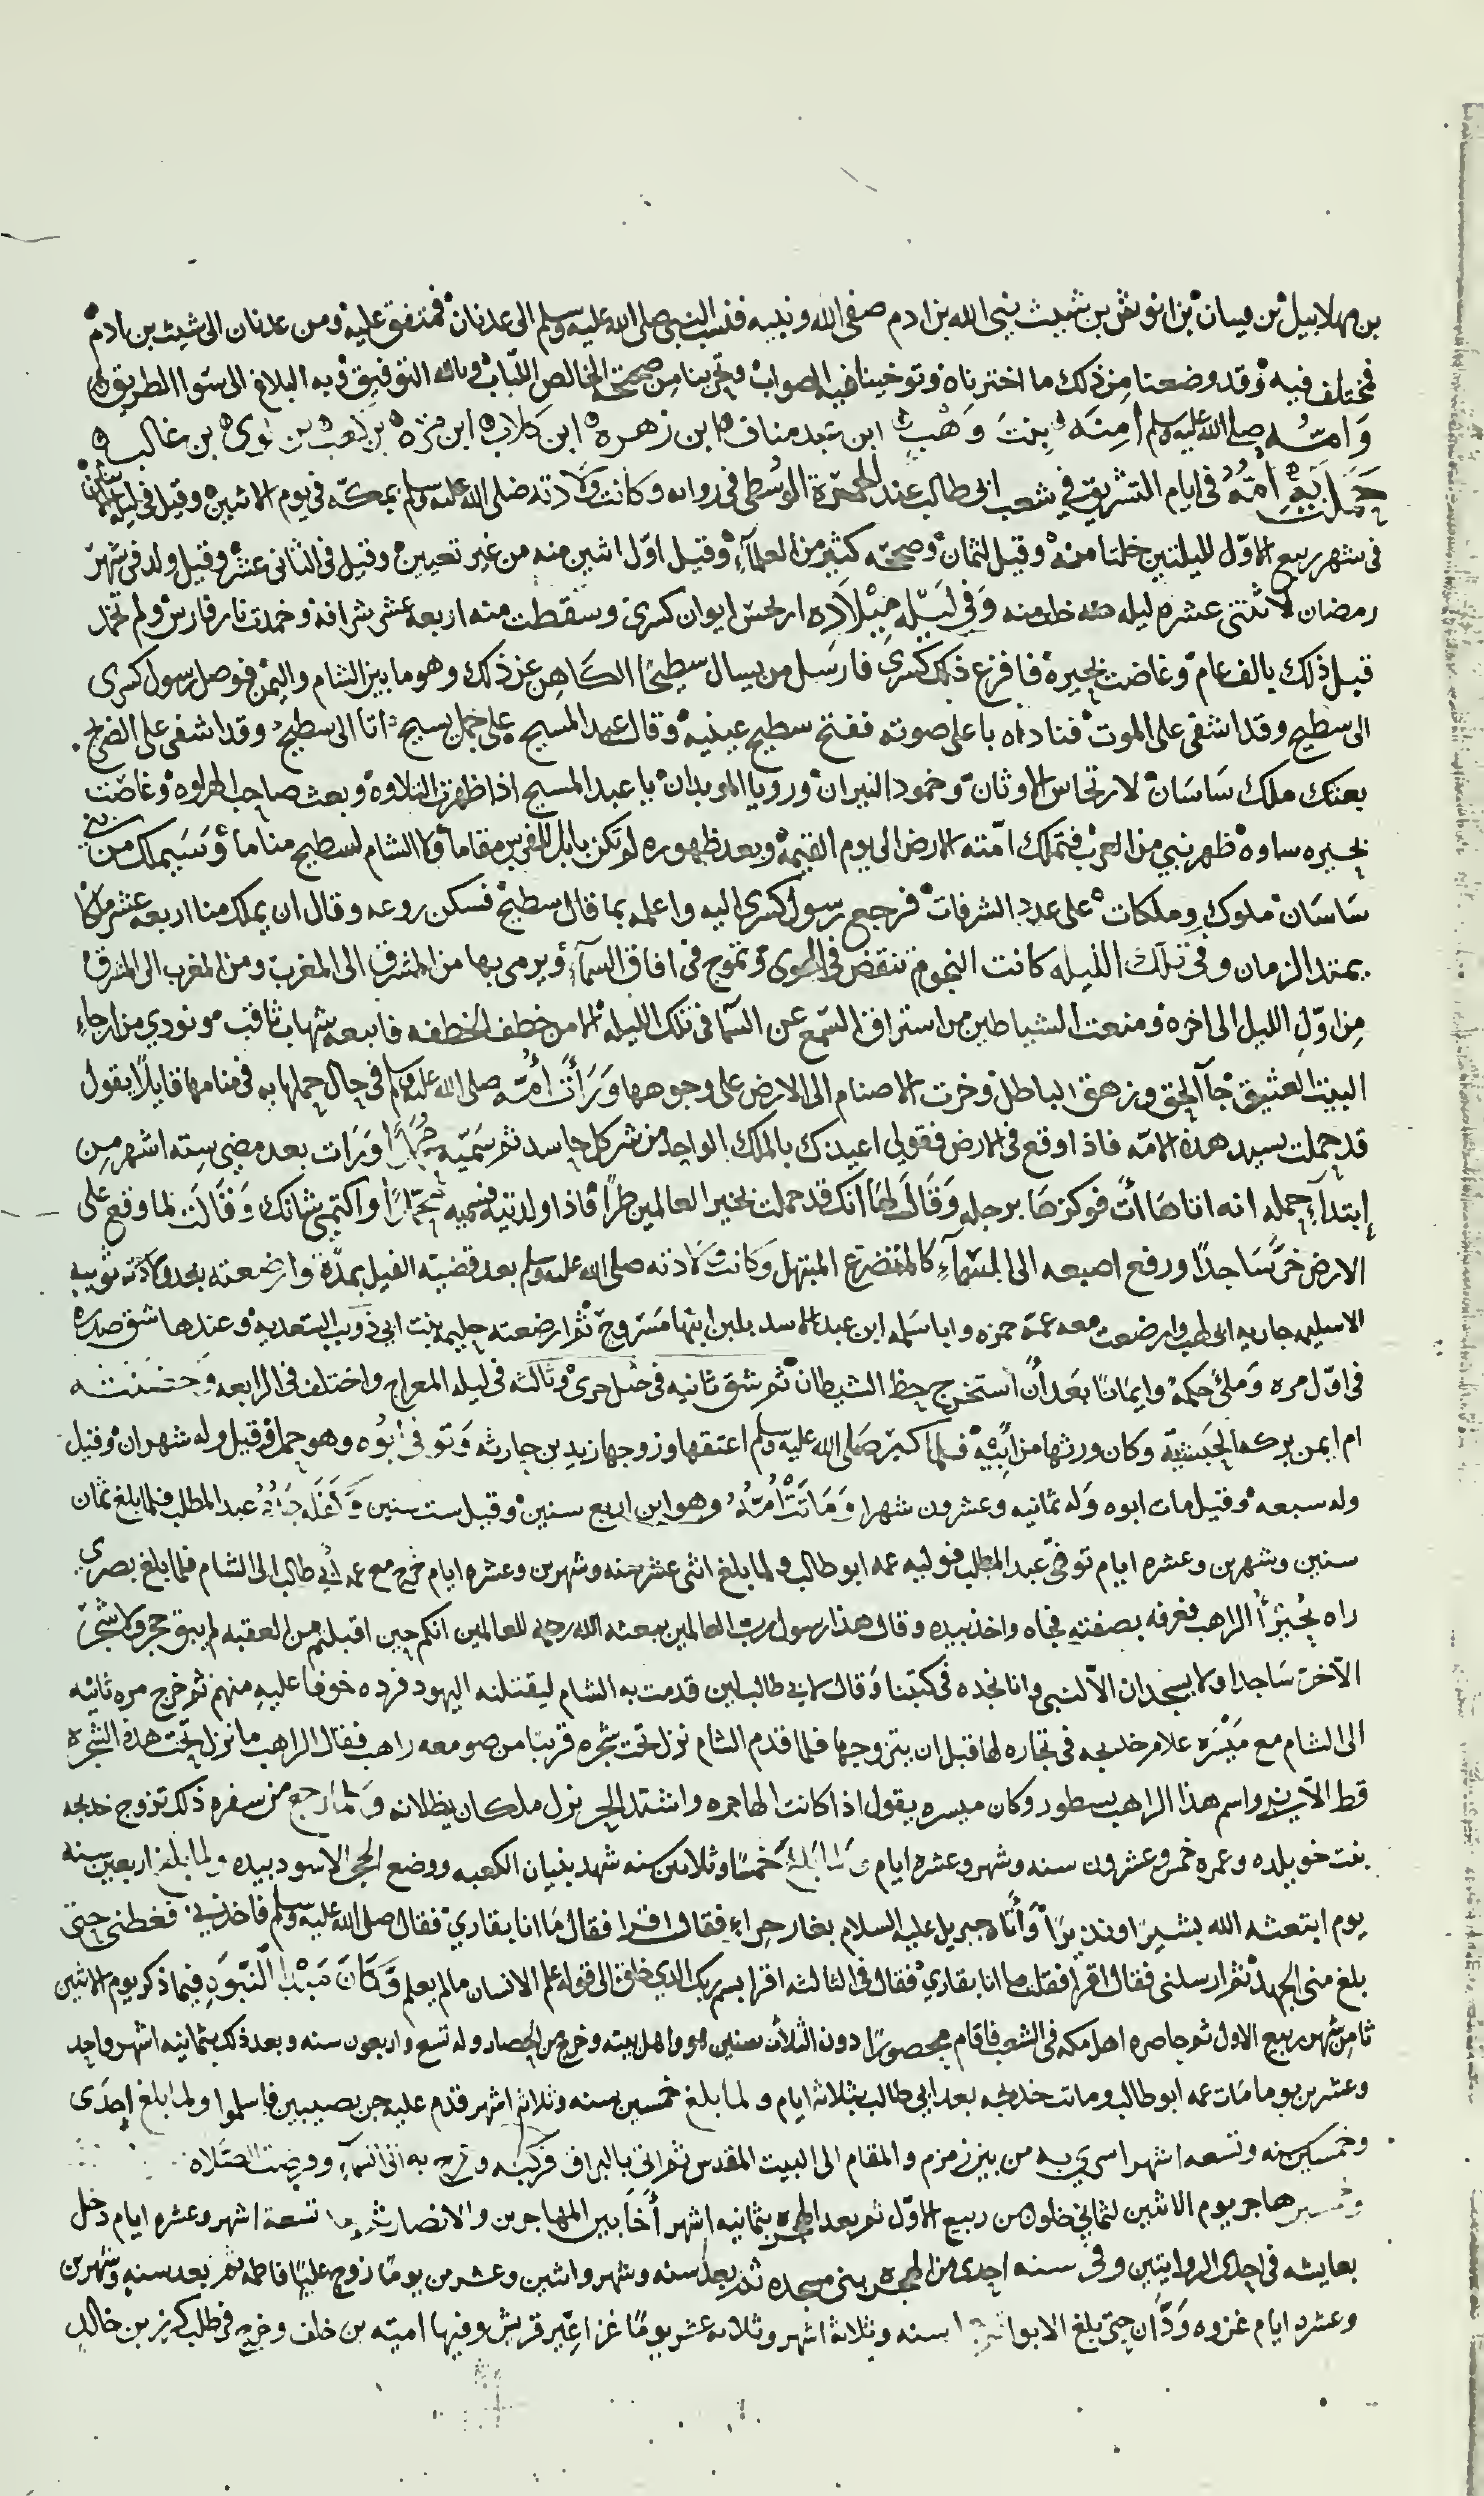 بن مهلابيل بن قيسان بن انوش بن شيث نبي الله بن ادم صفي الله ونبيه فنسب النبي صلى الله عليه وسلم الى عدنان فمتفق عليه ومن عدنان الى شيث بن ادم
فمختلف فيه وقد وضعنا من ذلك ما اخترناه وتوخينا فيه الصواب وتحرينا من صحته الخالص اللباب وبالله التوفيق وبه البلاغ الى سوا الطريق
وامه صلى الله عليه وسلم امنه بنت وهب ابن عبد مناف ابن زهره ابن كلاب ابن مره بن كعب بن لوى بن غالب
حملت به امه في ايام التشريق في شعب ابى طالب عند الجمرة الوسطى في روايه وكانت ولادته صلى الله عليه وسلم بمكه في يوم الاثنين وقيل في ليله
فى شهر ربيع الاول لليلتين خلتا منه وقيل لثمان وصححه كثير من العلماء وقيل اول اثنين منه من غير تعيين وقيل في الثانى عشر وقيل ولد في شهر
رمضان لاثنتى عشره ليله خلت منه وفي ليله ميلاده ارتجس ايوان كسرى وسقطت منه اربعه عشر شرافه وخمدت نار فارس ولم تخمد
قبل ذلك بالف عام وغاضت بحيره فافزع ذلك كسرى فارسل من يسال سطيحا الكاهن عن ذلك وهو ما بين الشام واليمن فوصل رسول كسرى
الى سطيح وقد اشفى على الموت فناداه باعلى صوته ففتح سطيح عينيه وقال عبد المسيح على جمل يسيح اتا الى سطيح وقد اشفى على الضريح
بعثك ملك ساسان لارتجاس الاوثان وخمود النيران ورويا الموبدان يا عبد المسيح اذا ظهرت التلاوه وبعث صاحب الهراوه وغاضت
بحيره ساوه ظهر نبي من العرب فتملك امته الارض الى يوم القيمه وبعد ظهوره لم تكن بابل للفرس مقاما ولا الشام لسطيح مناما وسيملك من بني
ساسان ملوك وملكات على عدد الشرفات فرجع رسول كسرى اليه واعلمه بما قال سطيح فسكن روعه وقال ان يملك منا اربعه عشر ملكا
يمتد الزمان وفي تلك الليله كانت النجوم تنقض في الهوى وتموج في افاق السماء ويرمى بها من المشرق الى المغرب ومن المغرب الى المشرق
من اول الليل الى اخره ومنعت الشياطين من استراق السمع عن السما في تلك الليله الا من خطف الخطفه فاتبعه شهاب ثاقب ونودي من ارجاء
البيت العتيق جآ الحق وزهق الباطل وخرت الاصنام الى الارض على وجوهها ورأت أمه صلى الله عليه وسلم في حال حملها به فى منامها قايلا يقول
قد حملت بسيد هذه الامه فاذا وقع في الارض فقولي اعيذك بالملك الواحد من شر كل حاسد ثم سميه محمدا ورات بعد مضى سته اشهر من
ابتداء حمله انه اتاها آت فوكزها برجله وقال لها انك قد حملت بخير العالمين طرا فاذا ولدتيه فسميه محمدا واكتمي شانك وقالت لما وقع على
الارض خر ساجدا ورفع اصبعه الى السماء كالمتضرع المبتهل وكانت ولادته صلى الله عليه وسلم بعد قضيه الفيل بمدة وارضعته بعد ولادته ثويبه
الاسلميه جاريه ابى لهب وارضعت معه عمه حمزه وابا سلمه ابن عبد الاسد بلبن ابنها مسروح ثم ارضعته حليمه بنت ابى ذويب السعديه وعندها شق صدره
فى اول مره وملئ حكمه وايمانا بعد أن استخرج حظ الشيطان ثم شق ثانيه فى جبل حرى وثالثه في ليله المعراج واختلف في الرابعه وحضنته
ام ايمن بركه الحبشيه وكان ورثها من أبيه فلما كبر صلى الله عليه وسلم اعتقها وزوجها زيد بن حارثه وتوفي أبوه وهو حمل وقيل وله شهران وقيل
وله سبعه وقيل مات ابوه وله ثمانيه وعشرون شهرا وماتت أمه وهو ابن اربع سنين وقيل ست سنين وكفله جده عبد المطلب فلما بلغ ثمان
سنين وشهرين وعشره ايام توفي عبد المطلب فوليه عمه ابو طالب ولما بلغ اثنى عشر سنه وشهرين وعشره ايام خرج مع عمه أبي طالب الى الشام فلما بلغ بصرى
راه بحيرا الراهب فعرفه بصفته فجاه واخذ بيده وقال هذا رسول رب العالمين يبعثه الله رحمة للعالمين انكم حين اقبلتم من العقبه لم يبق حجر ولا شجر
الا خر ساجدا ولا يسجدان الا لنبى وانا نجده فى كتبنا وقال لابي طالب لين قدمت به الشام ليقتلنه اليهود فرده خوفا عليه منهم ثم خرج مره ثانيه
الى الشام مع ميسره غلام خديجه فى تجاره لها قبل ان يتزوجها فلما قدم الشام نزل تحت شجره قريبا من صومعه راهب فقال الراهب ما نزل تحت هذه الشجره
قط الا نبي واسم هذا الراهب نسطور وكان ميسره يقول اذا كانت الهاجره واشتد الحر نزل ملكان يظلانه ولما رجع من سفره ذلك تزوج خديجه
بنت خويلده وعمره خمس وعشرون سنه وشهر وعشره ايام ولما بلغ خمسا وثلاثين سنه شهد بنيان الكعبه ووضع الحجر الاسود بيده ولما بلغ اربعين سنه
يوم ابتعثه الله بشيرا ونذيرا وأتاه جبريل عليه السلام بغار حراء فقال اقرا فقال ما انا بقاري فقال صلى الله عليه وسلم فاخذني فغطنى حتى
بلغ منى الجهد ثم ارسلنى فقال اقرا فقلت ما انا بقاري فقال في الثالثه اقرا بسم ربك الذي خلق الى قوله علم الانسان مالم يعلم وكان مبدا النبوه فيما ذكر يوم الاثنين
ثامن شهر ربيع الاول ثم حاصره اهل مكه فى الشعب فاقام محصورا دون الثلاث سنين هو واهل بيته وخرج من الحصار وله تسع واربعون سنه وبعد ذلك بثمانيه اشهر واحد
وعشرين يوما مات عمه ابو طالب وماتت خديجه بعد ابي طالب بثلاثه ايام ولما بلغ خمسين سنه وثلاثه اشهر قدم عليه جن نصيبين فاسلموا ولما بلغ احدى
وخمسين سنه وتسعه اشهر اسري به من بين زمزم والمقام الى البيت المقدس ثم اتى بالبراق فركبه وعرج به الى السماء وفرضت الصلاه
وخمسين هاجر يوم الاثنين لثماني خلون من ربيع الاول ثم بعد الهجره بثمانيه اشهر أخا بين المهاجرين والانصار تسعة اشهر وعشره ايام دخل
بعايشه في احدى الروايتين وفي سنه احدى من الهجره بنى مسجده ثم بعد سنه وشهر واثنين وعشرين يوما زوج عليا فاطمه ثم بعد سنه وشهرين
وعشره ايام غزوه ودان حتى بلغ الابوا سنه وثلاثة اشهر وثلاثه عشر يوما غزا عير قريش وفيها اميه بن خلف وخرج في طلب كرز بن خالد